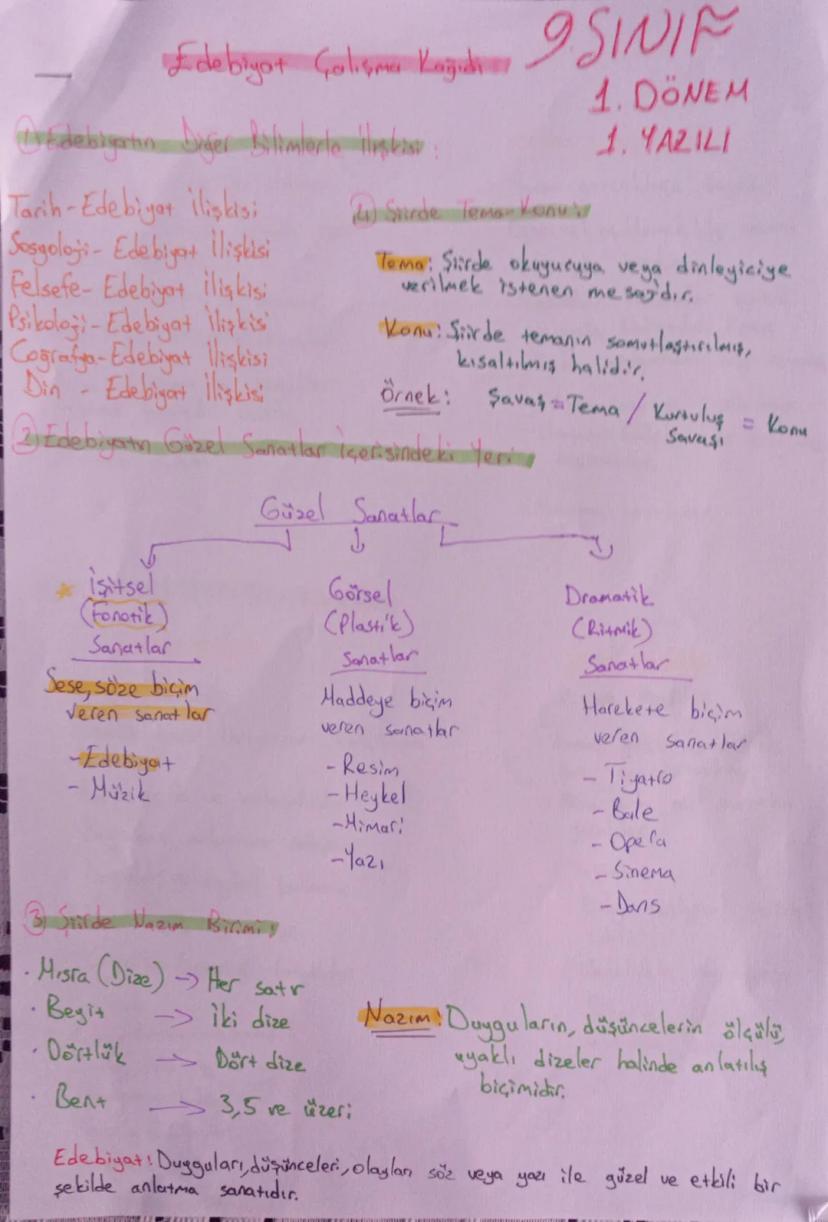 Edebiyat Çalışma Kağıdı
9 SINIF
1. DÖNEM
1. YAZILI
1) Edebiyatın Diğer Bilimlerle İlişkisi:
Tarih - Edebiyat İlişkisi
Sosyoloji - Edebiyat İlişkisi
Felsefe - Edebiyat İlişkisi
Psikoloji - Edebiyat İlişkisi
Coğrafya - Edebiyat İlişkisi
Din - Edebiyat İlişkisi
4) Şiirde Tema-Konu:
Tema: Şiirde okuyucuya veya dinleyiciye
verilmek istenen mesajdır.
Konu: Şiirde temanın somutlaştırılmış,
kısaltılmış halidir.
Örnek: Savaş = Tema / Kurtuluş Savaşı = Konu
2) Edebiyatın Güzel Sanatlar İçerisindeki Yeri
Güzel Sanatlar
İşitsel
(Fonotik)
Sanatlar
Sese, söze biçim
veren sanatlar
- Edebiyat
- Müzik
Görsel
(Plastik)
Sanatlar
Maddeye biçim
veren sanatlar
- Resim
- Heykel
- Mimari
- Yazı
Dramatik
(Ritmik)
Sanatlar
Harekete biçim
veren sanatlar
- Tiyatro
- Bale
- Opera
- Sinema
- Dans
3) Şiirde Nazım Birimi:
· Mısra (Dize) → Her satır
· Beyit → İki dize
· Dörtlük → Dört dize
· Bent → 3,5 ve üzeri
Nazım: Duyguların, düşüncelerin ölçülü,
uyaklı dizeler halinde anlatılış
biçimidir.
Edebiyat: Duyguları, düşünceleri, olayları söz veya yazı ile güzel ve etkili bir
şekilde anlatma sanatıdır.